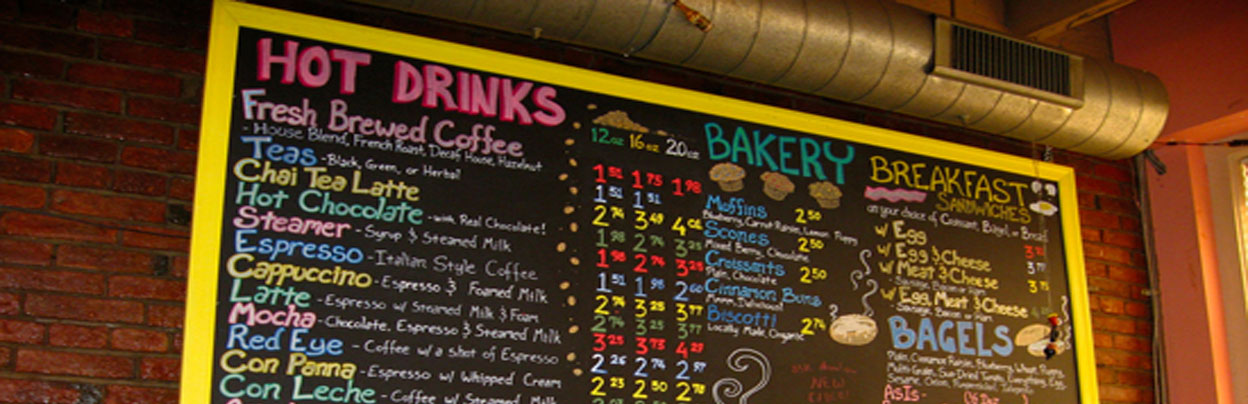 HOT DRINKS
Fresh Brewed Coffee
- House Blend, French Roast, Decaf House, Hazelnut
Teas - Black, Green, or Herbal
Chai Tea Latte
Hot Chocolate - with Real Chocolate!
Steamer - Syrup & Steamed Milk
Espresso - Italian Style Coffee
Cappuccino - Espresso & Foamed Milk
Latte - Espresso w/ Steamed Milk & Foam
Mocha - Chocolate, Espresso & Steamed Milk
Red Eye - Coffee w/ a shot of Espresso
Con Panna - Espresso w/ Whipped Cream
Con Leche - Coffee w/ Steamed Milk
12oz 16oz 20oz
1.51 1.75 1.98
1.51 1.51
2.74 3.49
1.98 2.74 3.25
1.98 2.74 3.25
1.51 1.98 2.60
2.74 3.25 3.77
2.74 3.25 3.77
3.25 3.73 4.29
2.26 2.74 2.97
2.25 2.50 2.75
BAKERY
Muffins 2.50
Blueberry, Carrot Raisin, Lemon Poppy
Scones 2.50
Mixed Berry, Chocolate
Croissants 2.50
Plain, Chocolate
Cinnamon Buns
Mmm, Delicious!
Biscotti 2.74
Locally Made, Organic
NEW
BREAKFAST
SANDWICHES
on your choice of Croissant, Bagel, or Bread
w/ Egg
w/ Egg & Cheese
w/ Meat & Cheese
w/ Egg, Meat & Cheese
Sausage, Bacon or Ham
BAGELS
Plain, Cinnamon Raisin, Blueberry, Wheat, Poppy
Multi-Grain, Sun-Dried Tomato, Everything, Egg
AsIs -